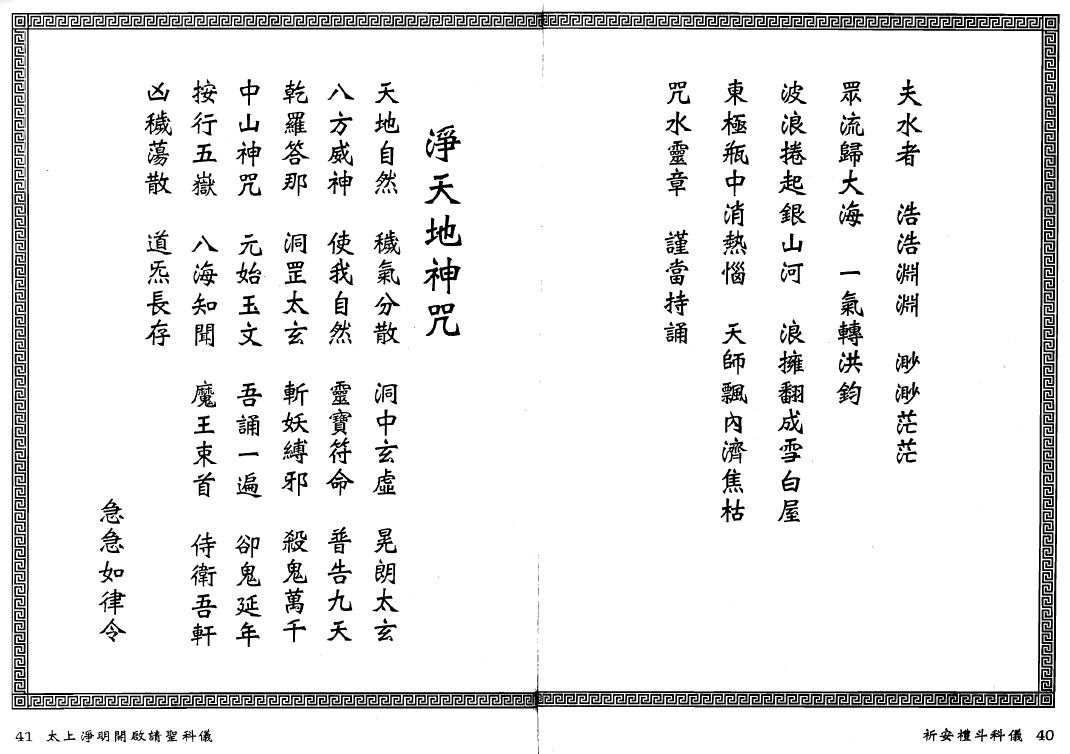 夫水者　浩浩淵淵　渺渺茫茫
眾流歸大海　一氣轉洪鈞
波浪捲起銀山河　浪擁翻成雪白屋
東極瓶中消熱惱　天師飄內濟焦枯
咒水靈章　謹當持誦
祈安禮斗科儀 40
淨天地神咒
天地自然　穢氣分散　洞中玄虛　晃朗太玄
八方威神　使我自然　靈寶符命　普告九天
乾羅答那　洞罡太玄　斬妖縛邪　殺鬼萬千
中山神咒　元始玉文　吾誦一遍　卻鬼延年
按行五嶽　八海知聞　魔王束首　侍衛吾軒
凶穢蕩散　道炁長存
急急如律令
41 太上淨明開啟請聖科儀